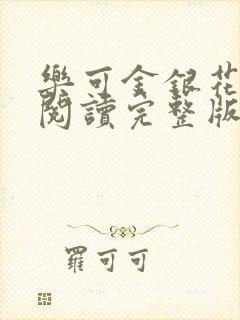 樂可金銀花
閱讀完整版
羅可可